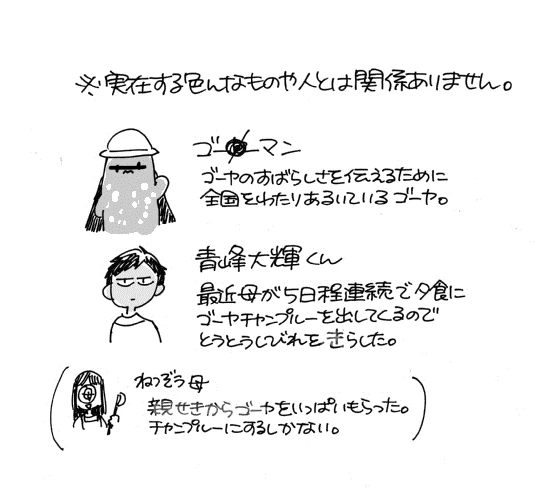 ※実在する色んなものや人とは関係ありません。
ゴーヤーマン
ゴーヤのすばらしさを伝えるために
全国をわたりあるいているゴーヤ。
青峰大輝くん
最近母が5日程連続で夕食に
ゴーヤチャンプルーを出してくるので
とうとうしびれをきらした。
ねつぞう母
親せきからゴーヤをいっぱいもらった。
チャンプルーにするしかない。